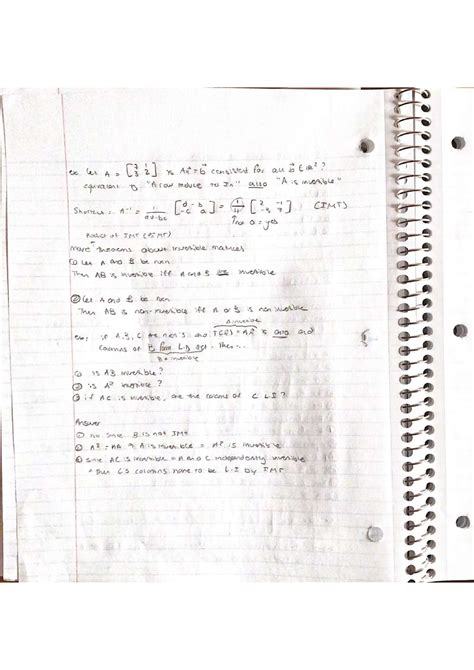 ex: let A = [7 1; 3 2] is Ax⃗ = b⃗ consistent for all b⃗ ∈ ℝ² ?
equivalent to "A row reduce to In" also "A is invertible"
Shortcut = A⁻¹ = 1/ad-bc [d -b; -c a] = 1/11 [2 -1; -3 7] (IMT)
≠ 0 = yes
more theorems about invertible matrices
① let A and B be nxn
Then AB is invertible iff A and B are invertible
② let A and B be nxn
Then AB is non-invertible iff A or B is non invertible
A invertible
ex: if A, B, C are nxn's and and
columns of B form L.D set. Then...
B ≠ invertible
① is AB invertible?
② is A² invertible?
③ if AC is invertible, are the columns of C L.I?
Answer
① no since B is not IMT
② A² = AA → A is invertible = A² is invertible
③ since AC is invertible = A and C independently invertible
Then C's columns have to be L.I by IMT